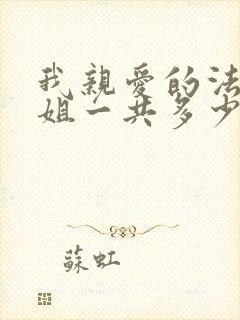 我親愛的法
姐一共多少
蘇虹